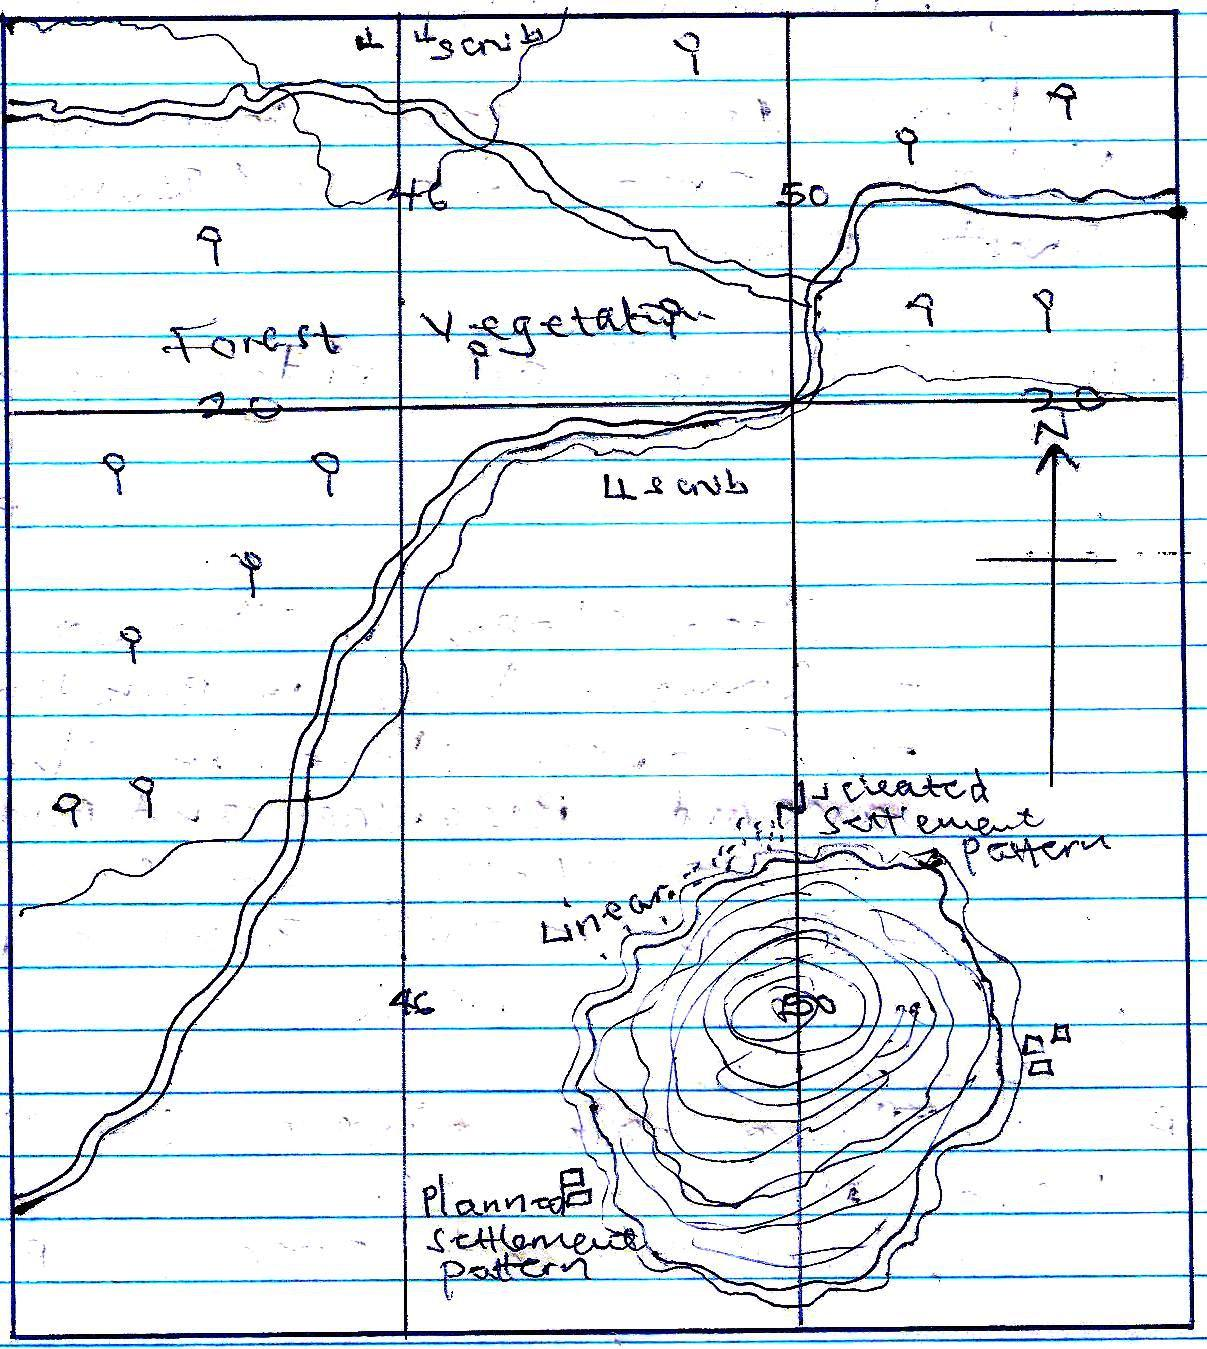 scrub
46
50
Forest Vegetation
20
20
N
scrub
Nucleated
settlement
pattern
Linear
46
50
Planned
settlement
pattern